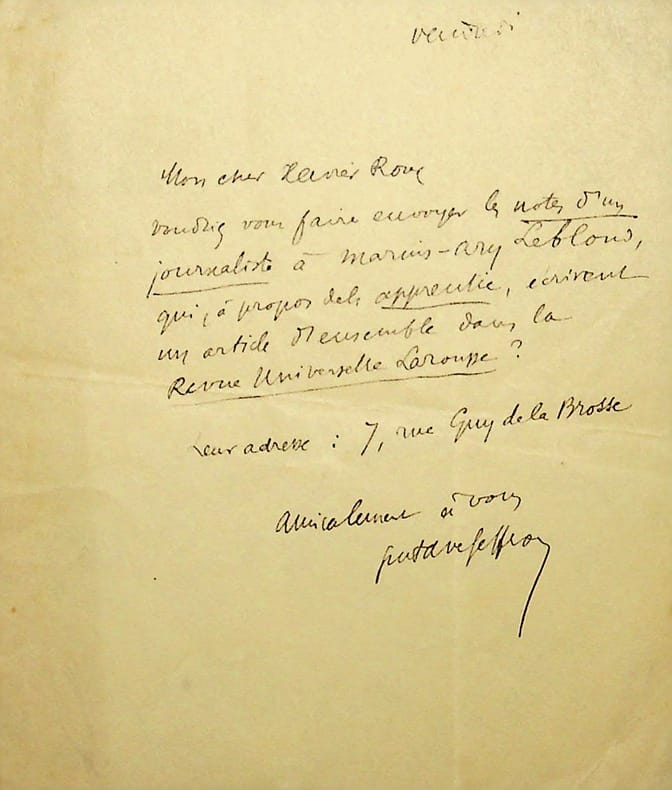 vendredi
Mon cher Xavier Roux
voudriez vous faire envoyer les notes d'un
journaliste à Marius-Ary Leblond,
qui, à propos de l'apprentie, écrivent
un article d'ensemble dans la
Revue Universelle Larousse ?
Leur adresse : 7, rue Guy de la Brosse
Amicalement à vous
Gustave Geffroy